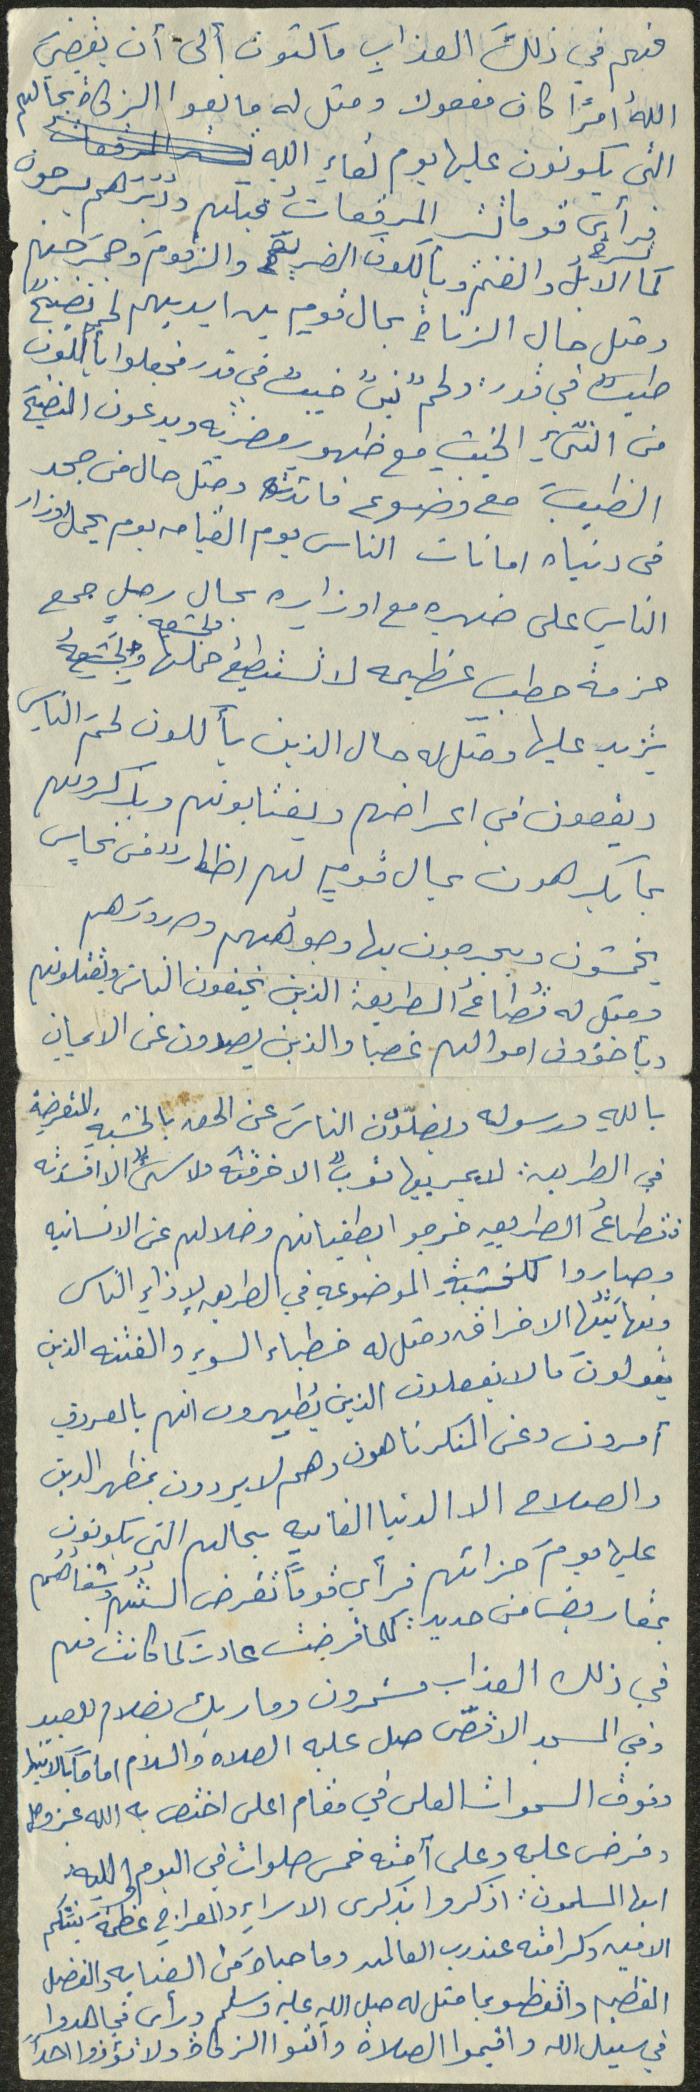 فهم في ذلك العذاب ماكثون ألى أن يقضيَ
اللهُ امرًا كان مفعولا ومثل له مانعوا الزكاة بحالهم
التى يكونون عليها يوم لقاءِ الله
فرأى قوما تشر المرقعات قبلهم ودبرهم يسرحون
كما تسرح الابل والغنم ويأكلون الضريع والزقوم وجمر جهنم
ومثل حال الزناة بحال قوم بين ايديهم لحم نضيجٌ
طيبٌ في قدر: ولحم نيئٌ خبيثٌ في قدر فجعلوا يأكلون
من النيّءِ الخبيث مع ظهور مضرته ويدعون النضيجَ
الطيبَ مع وضوح فائدته ومثل حال من جحد
فى دنياه امانات الناس يوم القيامه يوم يحمل اوزار
الناسِ على ظهره مع اوزاره بحال رجلٍ جمع
حزمةَ حطب عظيمه لا تستطيعُ حملها ولجشعه
يزيد عليها ومثّل له حال الذين يأكلون لحمَ الناسِ
ويقعون في اعراضهم ويغتابونهم ويذكرونهم
بما يكرهون بحال قومٍ لهم اظفارٌ من نحاسٍ
يخمشون ويجرحون بها وجوههم وصدورَهم
ومثل له قُطاعُ الطريقِ الذين يخيفون الناس ويقتلونهم
ويأخذون اموالهم غصبا والذين يصدون عن الايمان
باللهِ ورسوله ويضلّون الناسَ عن الحق بالخشبةِ المتعرضةِ
في الطريق: لا يمر بها ثوبٌ الا خرقته ولا شئٌ الا افسدته
فقطاعُ الطريق خرجوا بطغيانهم وضلالهم عن الانسانيه
وصاروا كالخشبةِ الموضوعهِ في الطريق لإذاءِ الناس
ونهايتُها الاحراق ومثل له خطباء السوءِ والفتنه الذين
يقولونَ مالا يفعلون الذين يُظهرون انهم بالمعروف
آمرون وعن المنكر ناهون وهم لا يريدون بمظهر الدين
والصلاح الا الدنيا الفانيه بحالهم التى يكونون
عليها يومَ جزائهم فرأى قوماً تقرض السنتهم وشفاهُهم
بمقاريض من حديد: كلما قرضت عادت كما كانت فهم
في ذلك العذاب مستمرون وما ربك بظلام للعبيد
وفي المسجد الاقصّى صلى عليه الصلاه والسلام اماماً بالانبياء
وفوق السموات العلى في مقام اعلى اختص به الله عز وجل
وفرض عليه وعلى أمته خمس صلوات في اليوم والليله
ايها المسلمون: اذكروا بذكرى الاسراءِ والمعراج عظمةَ نبيّكم
الامين وكرامته عند رب العالمين وما حباه من العنايه والفضل
العظيم واتعظوا بما مثل له صلى الله عليه وسلم ورأى فجاهدوا
في سبيل الله واقيموا الصلاة وآتوا الزكاة ولا تؤذوا احداً